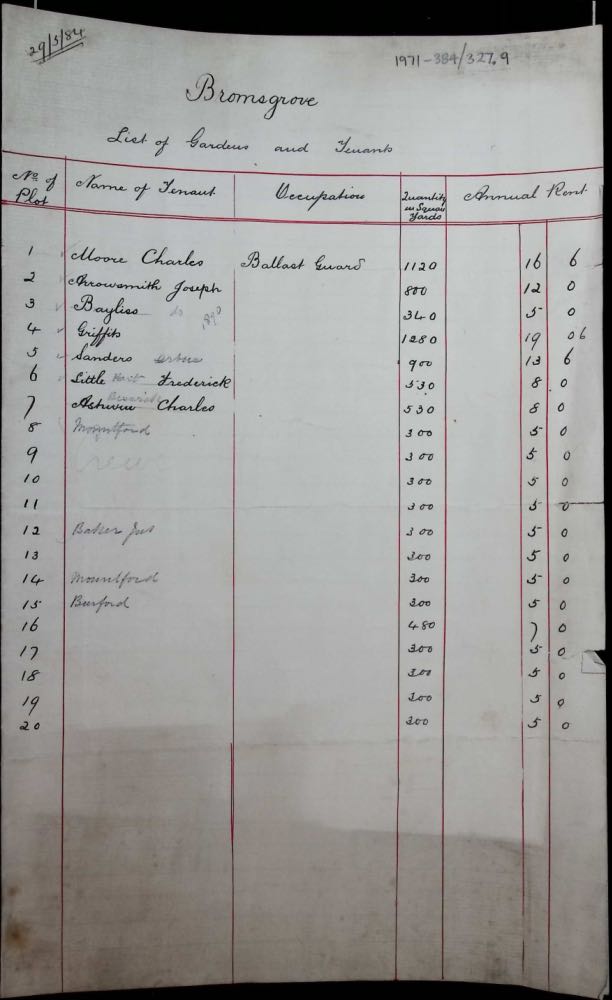 29/5/84
1971-384/327.9
Bromsgrove
List of Gardens and Tenants
No. of Plot Name of Tenant Occupation Quantity in Square Yards Annual Rent
1 Moore Charles Ballast Guard 1120 16 6
2 Arrowsmith Joseph 800 12 0
3 Bayliss do 340 5 0
4 Griffits 1280 19 06
5 Sanders 900 13 6
6 Little Frederick 530 8 0
7 Charles 530 8 0
8 Mountford 300 5 0
9 300 5 0
10 300 5 0
11 300 5 0
12 Baker Jas 300 5 0
13 300 5 0
14 Mountford 300 5 0
15 Burford 300 5 0
16 480 7 0
17 300 5 0
18 300 5 0
19 300 5 0
20 300 5 0